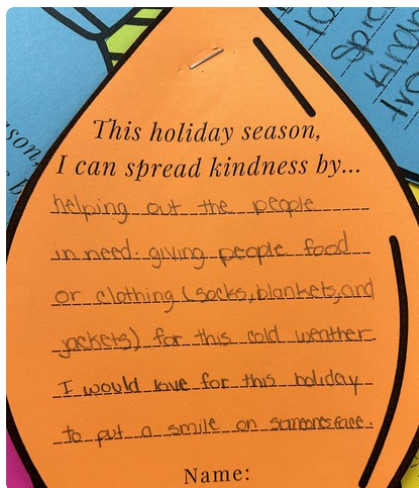 This holiday season,
I can spread kindness by...
helping out the people
in need. giving people food
or clothing (socks, blankets, and
jackets) for this cold weather.
I would love for this holiday
to put a smile on someones face.
Name:
son,
spre
kind